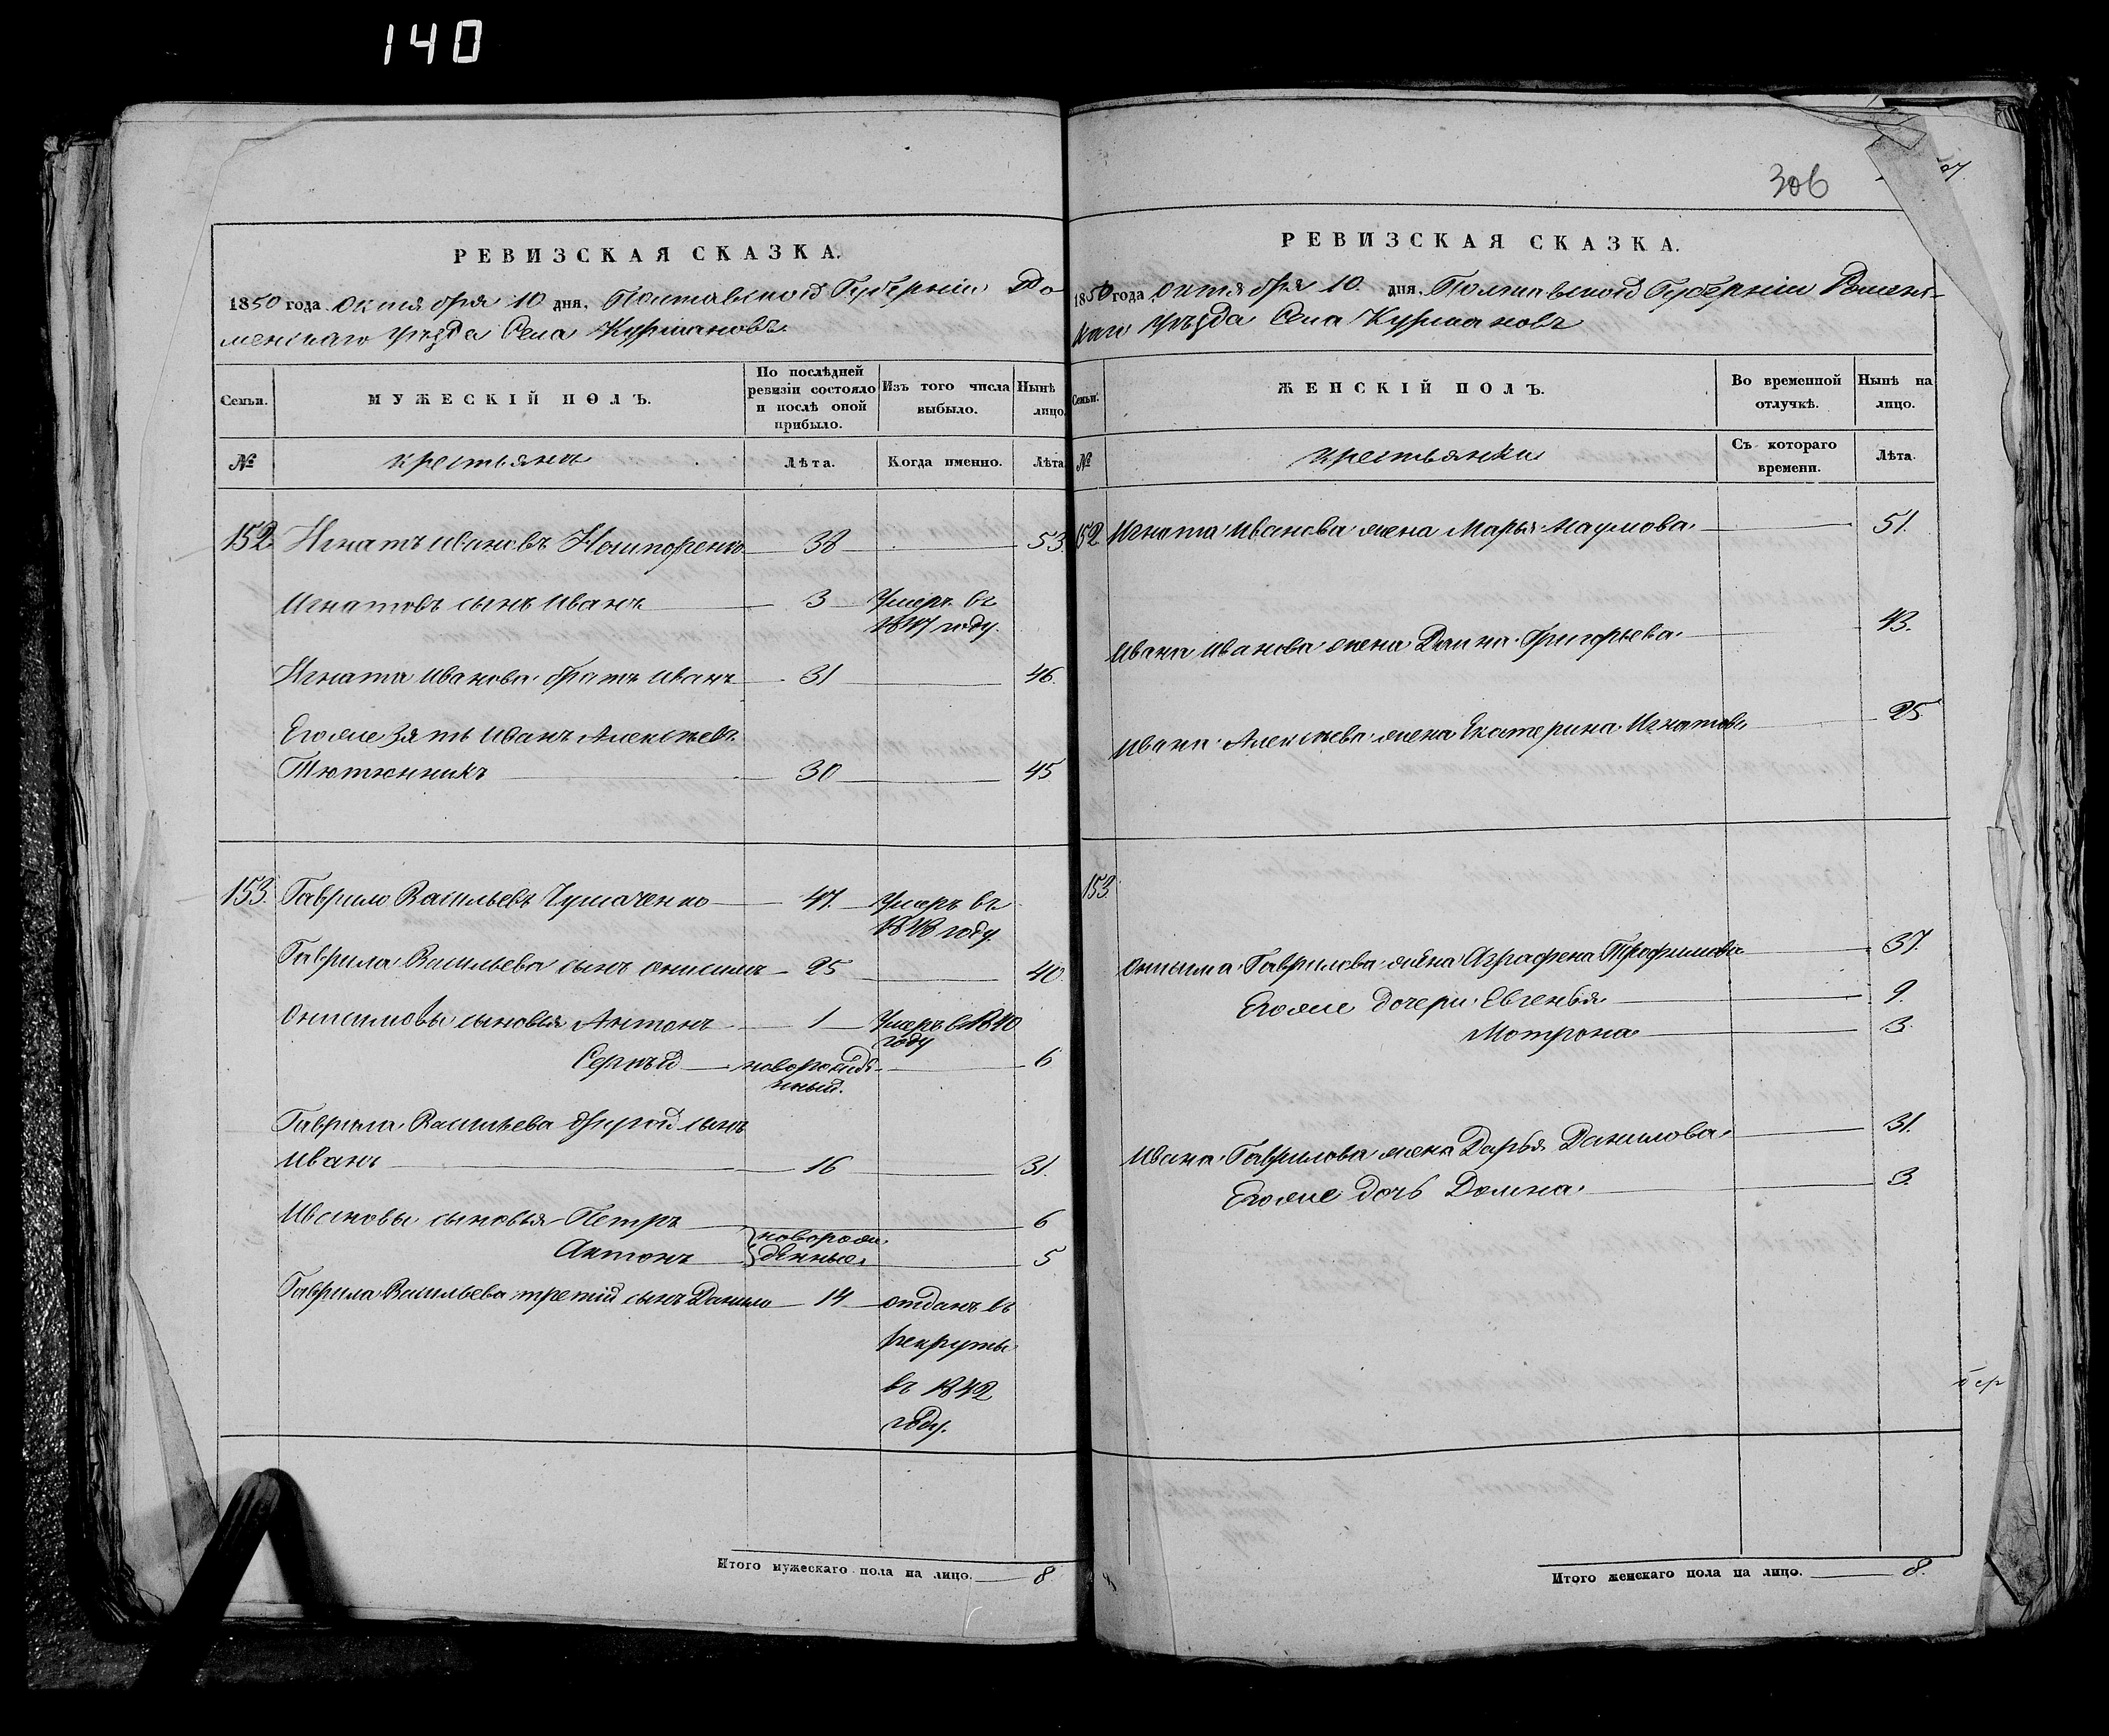 140
РЕВИЗСКАЯ СКАЗКА.
1850 года Октября 10 дня, Полтавской Губерніи Ро-
менскаго уѣзда Села Курмановъ
Семьи.
МУЖЕСКІЙ ПОЛЪ.
По послѣдней ревизіи состояло и послѣ оной прибыло.
Изъ того числа выбыло.
Нынѣ на лицо.
№
крестьянъ
Лѣта.
Когда именно.
Лѣта
152 Игнатъ Ивановъ 38 53.
Игнатовъ сынъ Иванъ 3 Умеръ въ
1847 году.
Игната Иванова братъ Иванъ 31 46.
Егоже зять Иванъ Алексѣевъ
Тютюнникъ 30 45
153. Гаврило Васильевъ Чумаченко 47. Умеръ въ
1848 году.
Гаврила Васильева сынъ Онисимъ 25 40.
Онисимовы сыновья Антонъ 1 Умеръ в 1840
году
Сергѣй новорожде-
нный. 6
Гаврила Васильева другой сынъ
Иванъ 16 31.
Ивановы сыновья Петръ 6
Антонъ новорож-
денные. 5
Гаврила Васильева третій сынъ Данило 14 отданъ въ
рекруты
въ 1842
году.
Итого мужескаго пола на лицо. 8
306
РЕВИЗСКАЯ СКАЗКА.
1850 года Октября 10 дня, Полтавской Губерніи Роменс-
каго уѣзда Села Курмановъ
Семьи.
ЖЕНСКІЙ ПОЛЪ.
Во временной отлучкѣ.
Нынѣ на лицо.
№
крестьянки
Съ котораго времени.
Лѣта.
152 Игната Иванова жена Марья Наумова 51.
Ивана Иванова жена Домна Григорьева 43.
Ивана Алексѣева жена Екатерина Игнатова 25
153.
Онисима Гаврилова жена Аграфена Трофимова 37.
Егоже дочери Евгенья 9.
Мотрона 3.
Ивана Гаврилова жена Дарья Данилова 31.
Егоже дочь Домна 3.
Итого женскаго пола на лицо. 8.